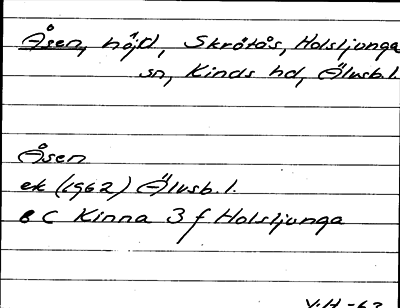 Åsen, höjd, Skråtås, Holsljunga
sn, Kinds hd, Älvsb.l.
Åsen
ek (1962) Älvsb.l.
8 C Kinna 3 f Holsljunga